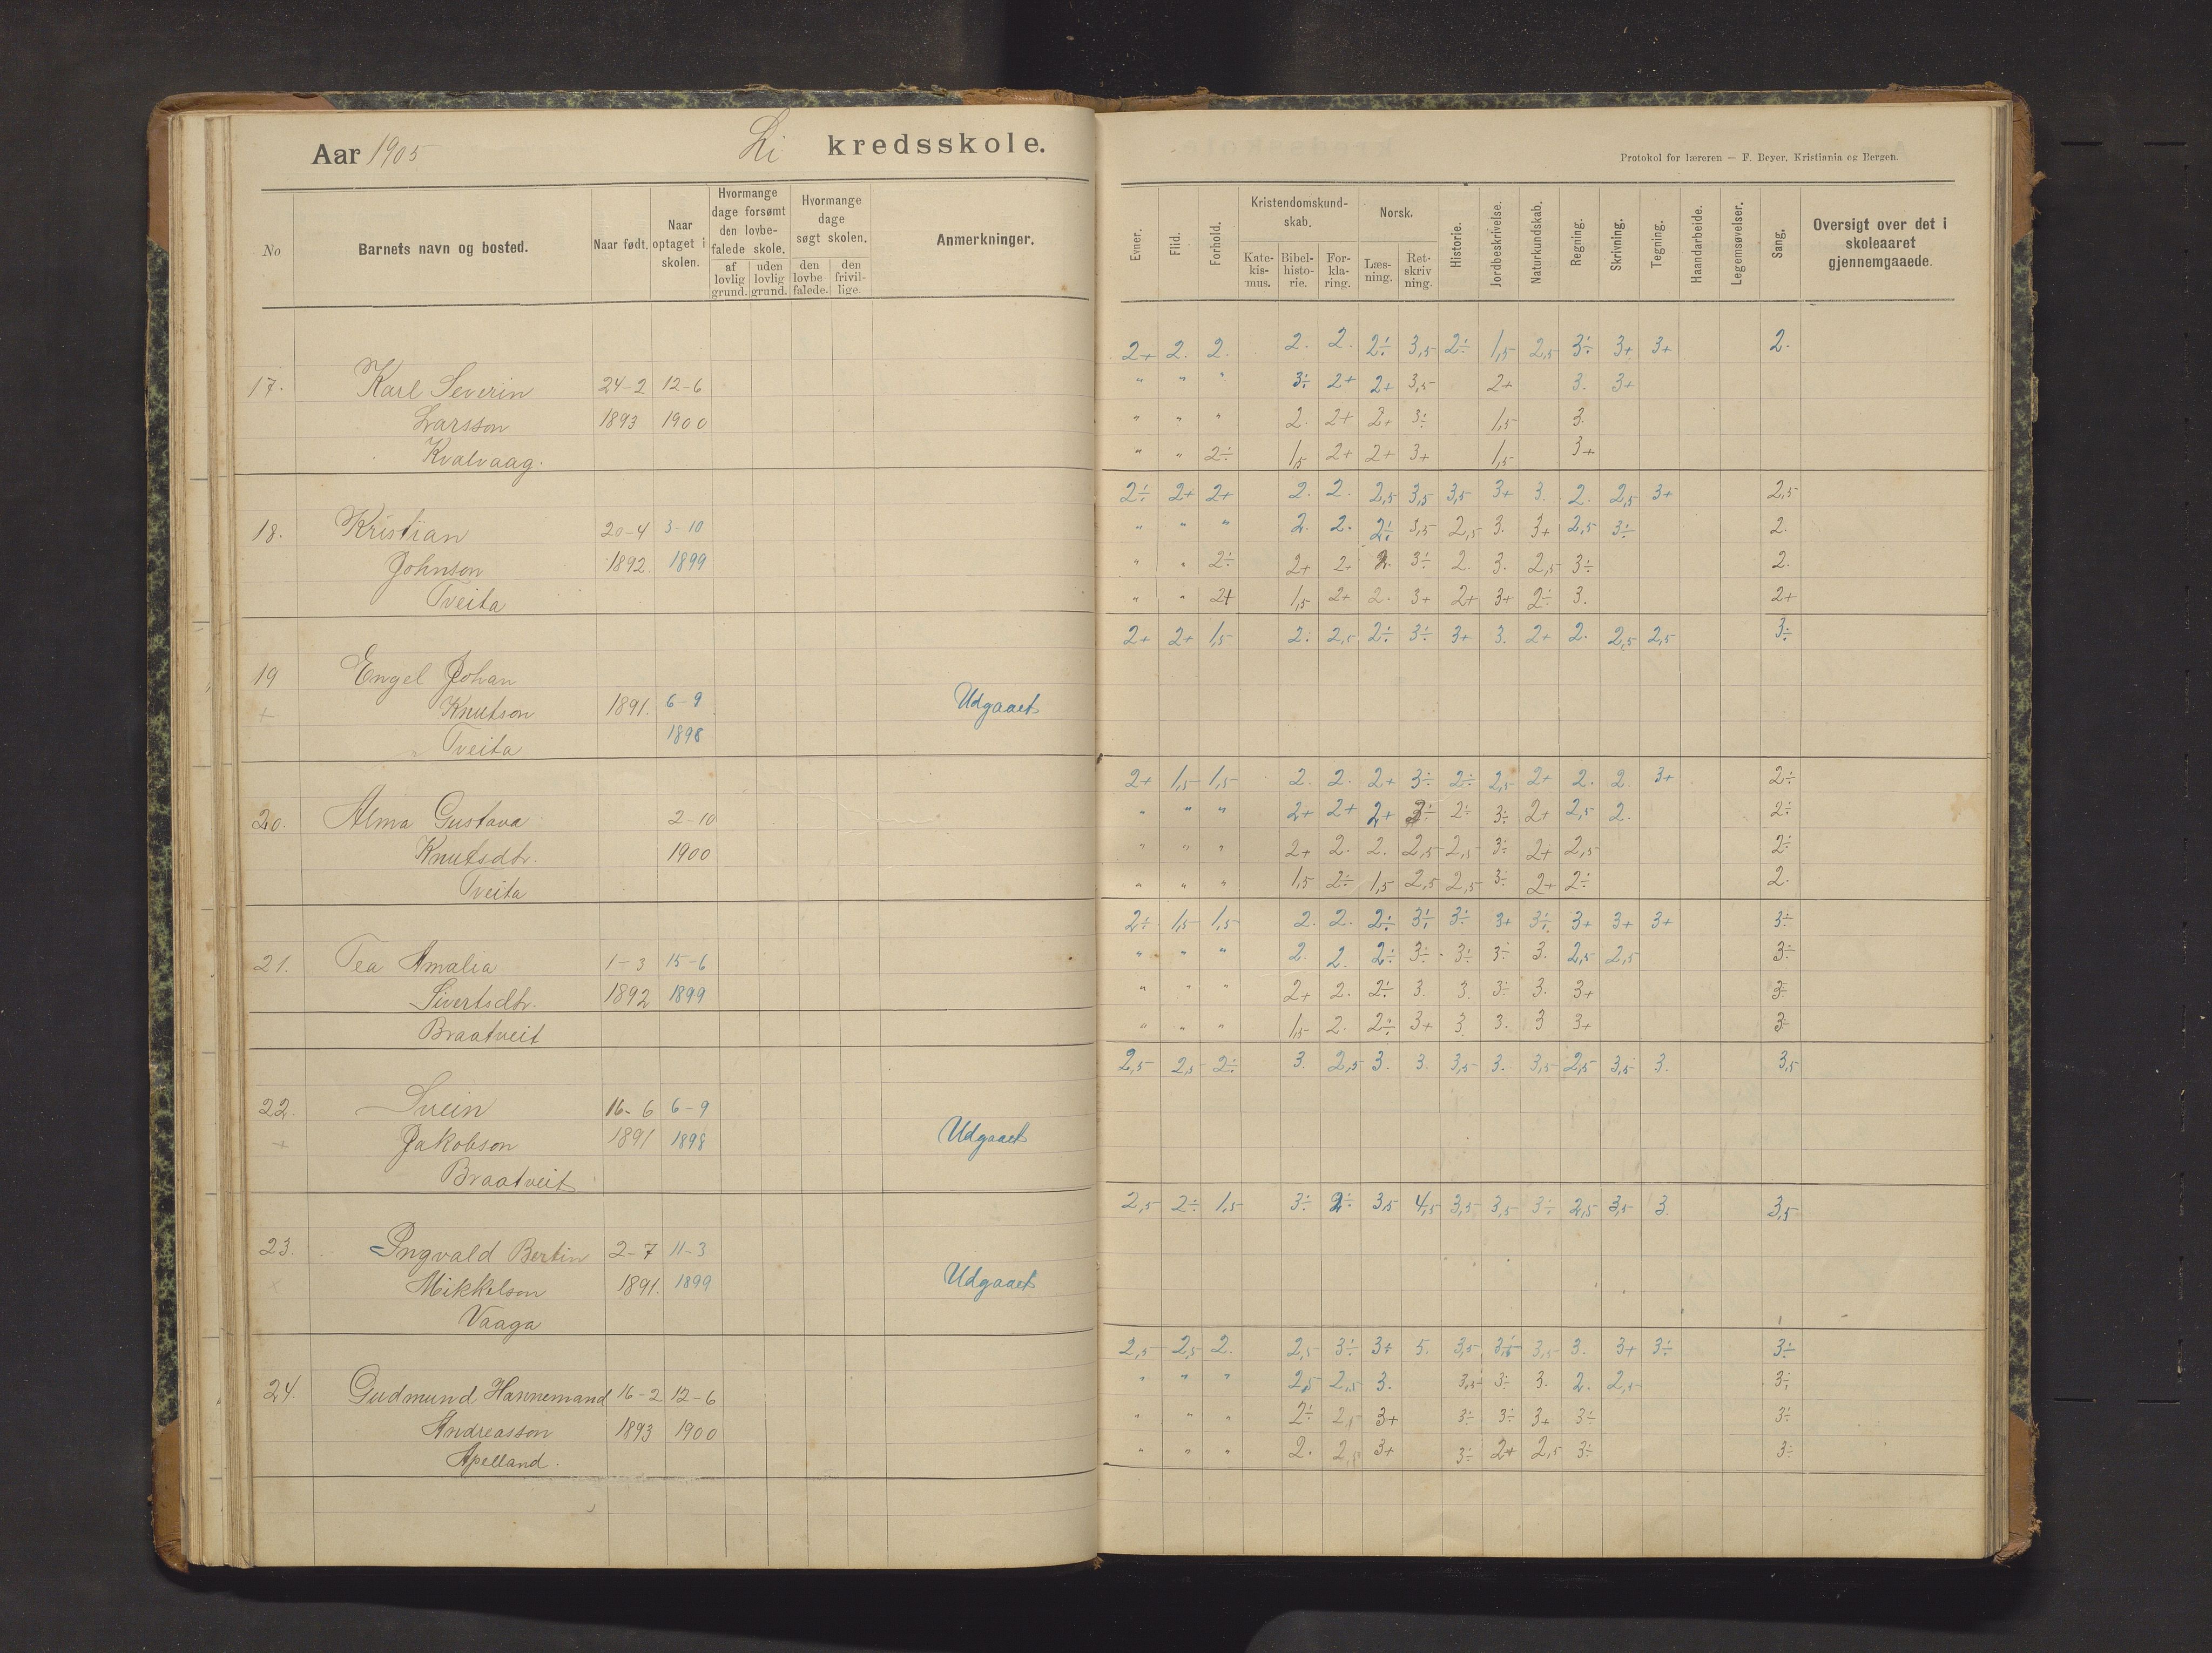 Aar 1905
Li kredsskole.
No
Barnets navn og bosted.
Naar født.
Naar optaget i skolen.
Hvormange dage forsømt den lovbe-falede skole.
af lovlig grund.
uden lovlig grund.
Hvormange dage søgt skolen.
den lovbe falede.
den frivil-lige.
Anmerkninger.
17. Karl Severin 24-2 12-6
Larsson 1893 1900
Kvalvaag.
18. Kristian 20-4 3-10
Johnson 1892. 1899
Tveita
19 Engel Johan
+ Knutson 1891. 6-9 Udgaaet
Tveita 1898
20. Alma Gustava 2-10
Knutsdtr. 1900
Tveita
21. Tea Amalia 1-3 15-6
Sivertsdtr. 1892 1899
Braatveit
22. Svein 16-6 6-9
+ Jakobson 1891 1898 Udgaaet
Braatveit
23. Ingvald Bertin 2-7 11-3
x Mikkelson 1891. 1899 Udgaaet
Vaaga
24. Gudmund Hannemand 16-2 12-6
Andreasson 1893 1900
Apelland.
Protokol for læreren — F. Beyer, Kristiania og Bergen.
Evner.
Flid.
Forhold.
Kristendomskund-skab.
Kate-kis-mus.
Bibel-histo-rie.
For-kla-ring.
Norsk.
Læs-ning.
Ret-skriv ning.
Historie.
Jordbeskrivelse.
Naturkundskab.
Regning.
Skrivning.
Tegning.
Haandarbeide.
Legemsøvelser.
Sang.
Oversigt over det i skoleaaret gjennemgaaede.
2+ 2. 2. 2. 2. 2÷ 3,5 2÷ 1,5 2,5 3÷ 3+ 3+ 2.
" " " 3÷ 2+ 2+ 3,5 2+ 3. 3+
" " " 2. 2+ 2+ 3÷ 1,5 3.
" " 2÷ 1,5 2+ 2+ 3+ 1,5 3+
2÷ 2+ 2+ 2. 2. 2,5 3,5 3,5 3+ 3. 2. 2,5 3+ 2,5
" " " 2. 2. 2÷ 3,5 2,5 3. 3+ 2,5 3÷ 2.
" " 2÷ 2+ 2+ 2. 3÷ 2. 3. 2,5 3÷ 2.
" " 2+ 1,5 2+ 2. 3+ 2+ 3+ 2÷ 3. 2+
2+ 2+ 1,5 2. 2,5 2÷ 3÷ 3+ 3. 2+ 2. 2,5 2,5 3÷
2+ 1,5 1,5 2. 2. 2+ 3÷ 2÷ 2,5 2+ 2. 2. 3+ 2÷
" " " 2+ 2+ 2+ 3÷ 2÷ 3÷ 2+ 2,5 2. 2÷
" " " 2+ 2. 2. 2,5 2,5 3÷ 2+ 2,5 2÷
" " " 1,5 2÷ 1,5 2,5 2,5 3÷ 2+ 2÷ 2.
2÷ 1,5 1,5 2. 2. 2÷ 3÷ 3÷ 3+ 3÷ 3+ 3+ 3+ 3÷
" " " 2. 2. 2÷ 3÷ 3÷ 3÷ 3. 2,5 2,5 3÷
" " " 2+ 2. 2÷ 3. 3. 3÷ 3. 3+ 3÷
" " " 1,5 2. 2÷ 3+ 3 3. 3 3+ 3÷
2,5 2,5 2÷ 3. 2,5 3. 3. 3,5 3. 3,5 2,5 3,5 3. 3,5
2,5 2÷ 1,5 3÷ 2÷ 3,5 4,5 3,5 3,5 3÷ 2,5 3,5 3. 3,5
2,5 2,5 2. 2,5 3÷ 3+ 5. 3,5 3,5 3,5 3. 3+ 3÷ 3÷
" " " 2,5 2,5 3. 3,5 3÷ 3. 2. 2,5 3÷
" " " 2÷ 2,5 3+ 3÷ 3÷ 3+ 3÷ 3÷
" " " 2. 2,5 3+ 3÷ 2+ 2,5 3÷ 3÷